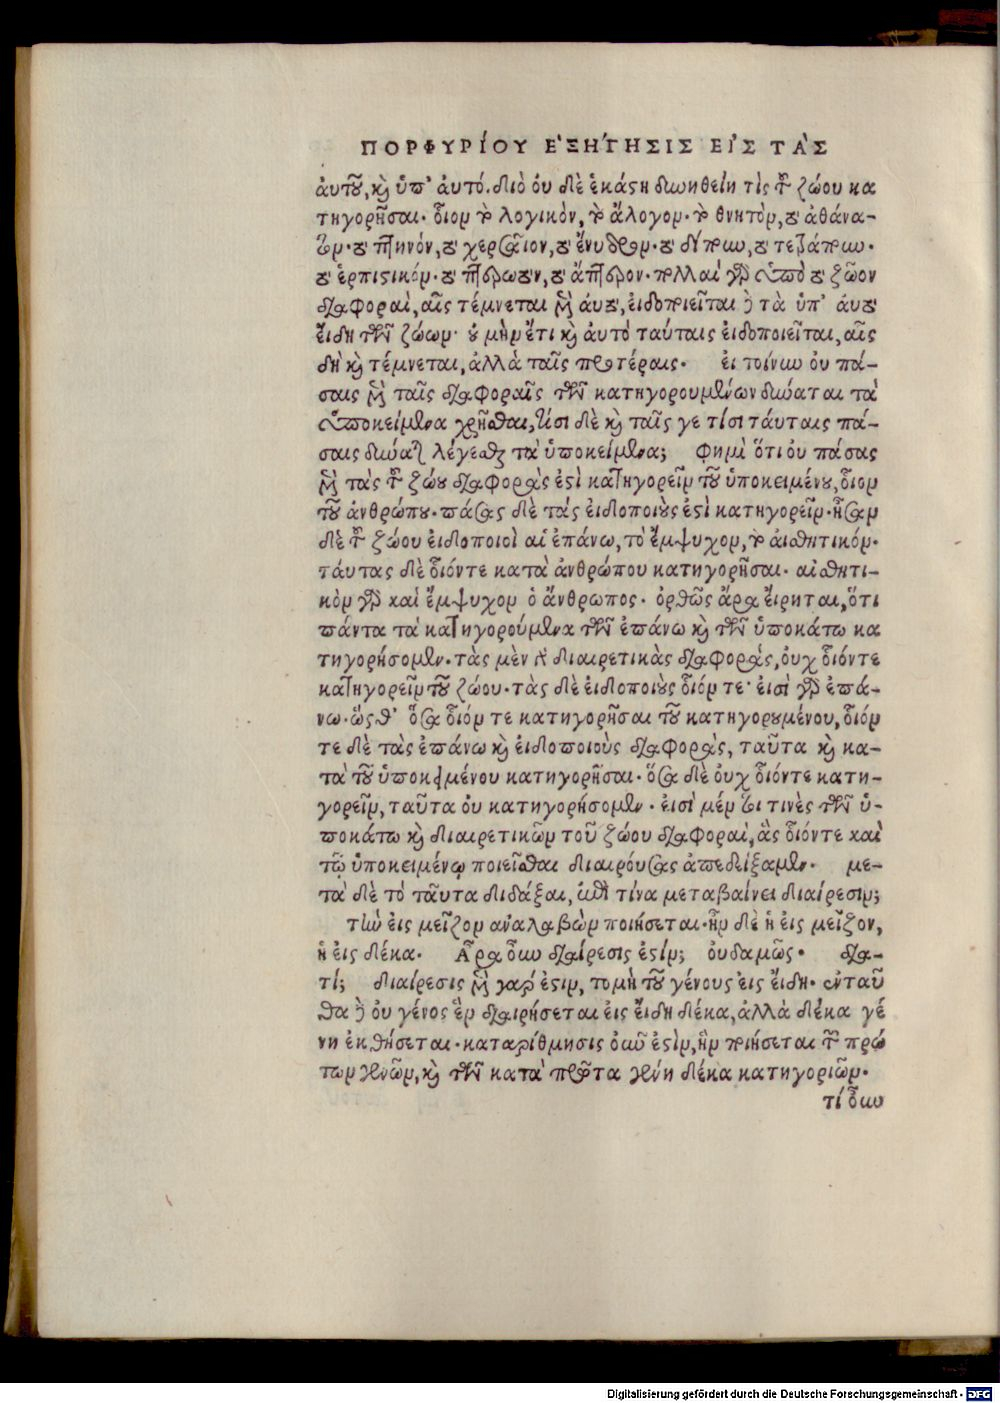 ΠΟΡΦΥΡίΟΥ ἘΞΗΓΗΣΙΣ ΕἸΣ ΤᾺΣ
ἀυτοῦ, καὶ ὑπ' ἀυτό. διὸ ὀυ δὲ ἑκάστη δυνηθείη τὶς τοῦ ζώου κα
τηγορῆσαι· οἷον τὸ λογικὸν, τὸ ἄλογον· τὸ θνητὸν, τὸ ἀθάνα-
τον· τὸ πτηνόν, τὸ χερσαῖον, τὸ ἔνυδρον· τὸ δίπουν, τὸ τετράπουν·
τὸ ἑρπιστικόν· τὸ πτερωτὸν, τὸ ἄπτερον· πολλαὶ γὰρ ὑπὸ τὸ ζῶον
διαφοραὶ, αἷς τέμνεται μὲν ἀυτὸ, ἐιδοποιεῖται δὲ τὰ ὑπ' ἀυτὸ
ἔιδη τῶν ζώων· ὀυ μὴν ἔτι καὶ ἀυτὸ ταύταις ἐιδοποιεῖται, αἷς
δὴ καὶ τέμνεται, ἀλλὰ ταῖς προτέραις· ἐι τοίνυν ὀυ πά-
σαις μὲν ταῖς διαφοραῖς τῶν κατηγορουμένων δύναται τὰ
ὑποκείμενα χρῆσθαι, τίσι δὲ καὶ ταῖς γε τίσι ταύταις πά-
σαις δύναται λέγεσθαι τὰ ὑποκείμενα; φημὶ ὅτι ὀυ πάσας
μὲν τὰς τοῦ ζώου διαφορὰς ἐστὶ κατηγορεῖν τοῦ ὑποκειμένου, οἷον
τοῦ ἀνθρώπου· πάσας δὲ τὰς ἐιδοποιοὺς ἐστὶ κατηγορεῖν· ἦσαν
δὲ τοῦ ζώου ἐιδοποιοὶ αἱ ἐπάνω, τὸ ἔμψυχον, τὸ ἀισθητικόν·
τάυτας δὲ οἷόντε κατὰ ἀνθρώπου κατηγορῆσαι· αἰσθητι-
κὸν γὰρ καὶ ἔμψυχον ὁ ἄνθρωπος· ὀρθῶς ἄρα ἔιρηται, ὅτι
πάντα τὰ κατηγορούμενα τῶν ἐπάνω καὶ τῶν ὑποκάτω κα
τηγορήσομεν· τὰς μὲν γὰρ διαιρετικὰς διαφορὰς, ὀυχ οἷόντε
κατηγορεῖν τοῦ ζώου· τὰς δὲ ἐιδοποιοὺς οἷόν τε· ἐισὶ γὰρ ἐπά-
νω· ὥς θ' ὅσα οἷόν τε κατηγορῆσαι τοῦ κατηγορουμένου, οἷόν
τε δὲ τὰς ἐπάνω καὶ ἐιδοποιοὺς διαφορὰς, ταῦτα καὶ κα-
τὰ τοῦ ὑποκειμένου κατηγορῆσαι· ὅσα δὲ ὀυχ οἷόντε κατη-
γορεῖν, ταῦτα ὀυ κατηγορήσομεν· ἐισὶ μέν τοι τινὲς τῶν ὑ-
ποκάτω καὶ διαιρετικῶν τοῦ ζώου διαφοραὶ, ἃς οἷόντε καὶ
τῷ ὑποκειμένῳ ποιεῖσθαι διαιρούσας ἀπεδείξαμεν· με-
τὰ δὲ τὸ ταῦτα διδάξαι, ἐπὶ τίνα μεταβαίνει διαίρεσιν;
τὴν ἐις μεῖζον ἀναλαβὼν ποιήσεται· ἦν δὲ ἡ ἐις μεῖζον,
ἡ ἐις δέκα· Ἆρα οὖν διαίρεσις ἐστίν; ὀυδαμῶς· δια-
τί; διαίρεσις μὲν γαρ ἐστιν, τομὴ τοῦ γένους ἐις ἔιδη· ἐνταῦ
θα δὲ ὀυ γένος ἓν διαιρήσεται ἐις ἔιδη δέκα, ἀλλὰ δέκα γέ
νη ἐκθήσεται· καταρίθμησις ὀυν ἐστὶν, ἣν ποιήσεται τῶν πρώ
των γενῶν, καὶ τῶν κατὰ πρῶτα γένη δέκα κατηγοριῶν·
τί οὖν
Digitalisierung gefördert durch die Deutsche Forschungsgemeinschaft - DFG